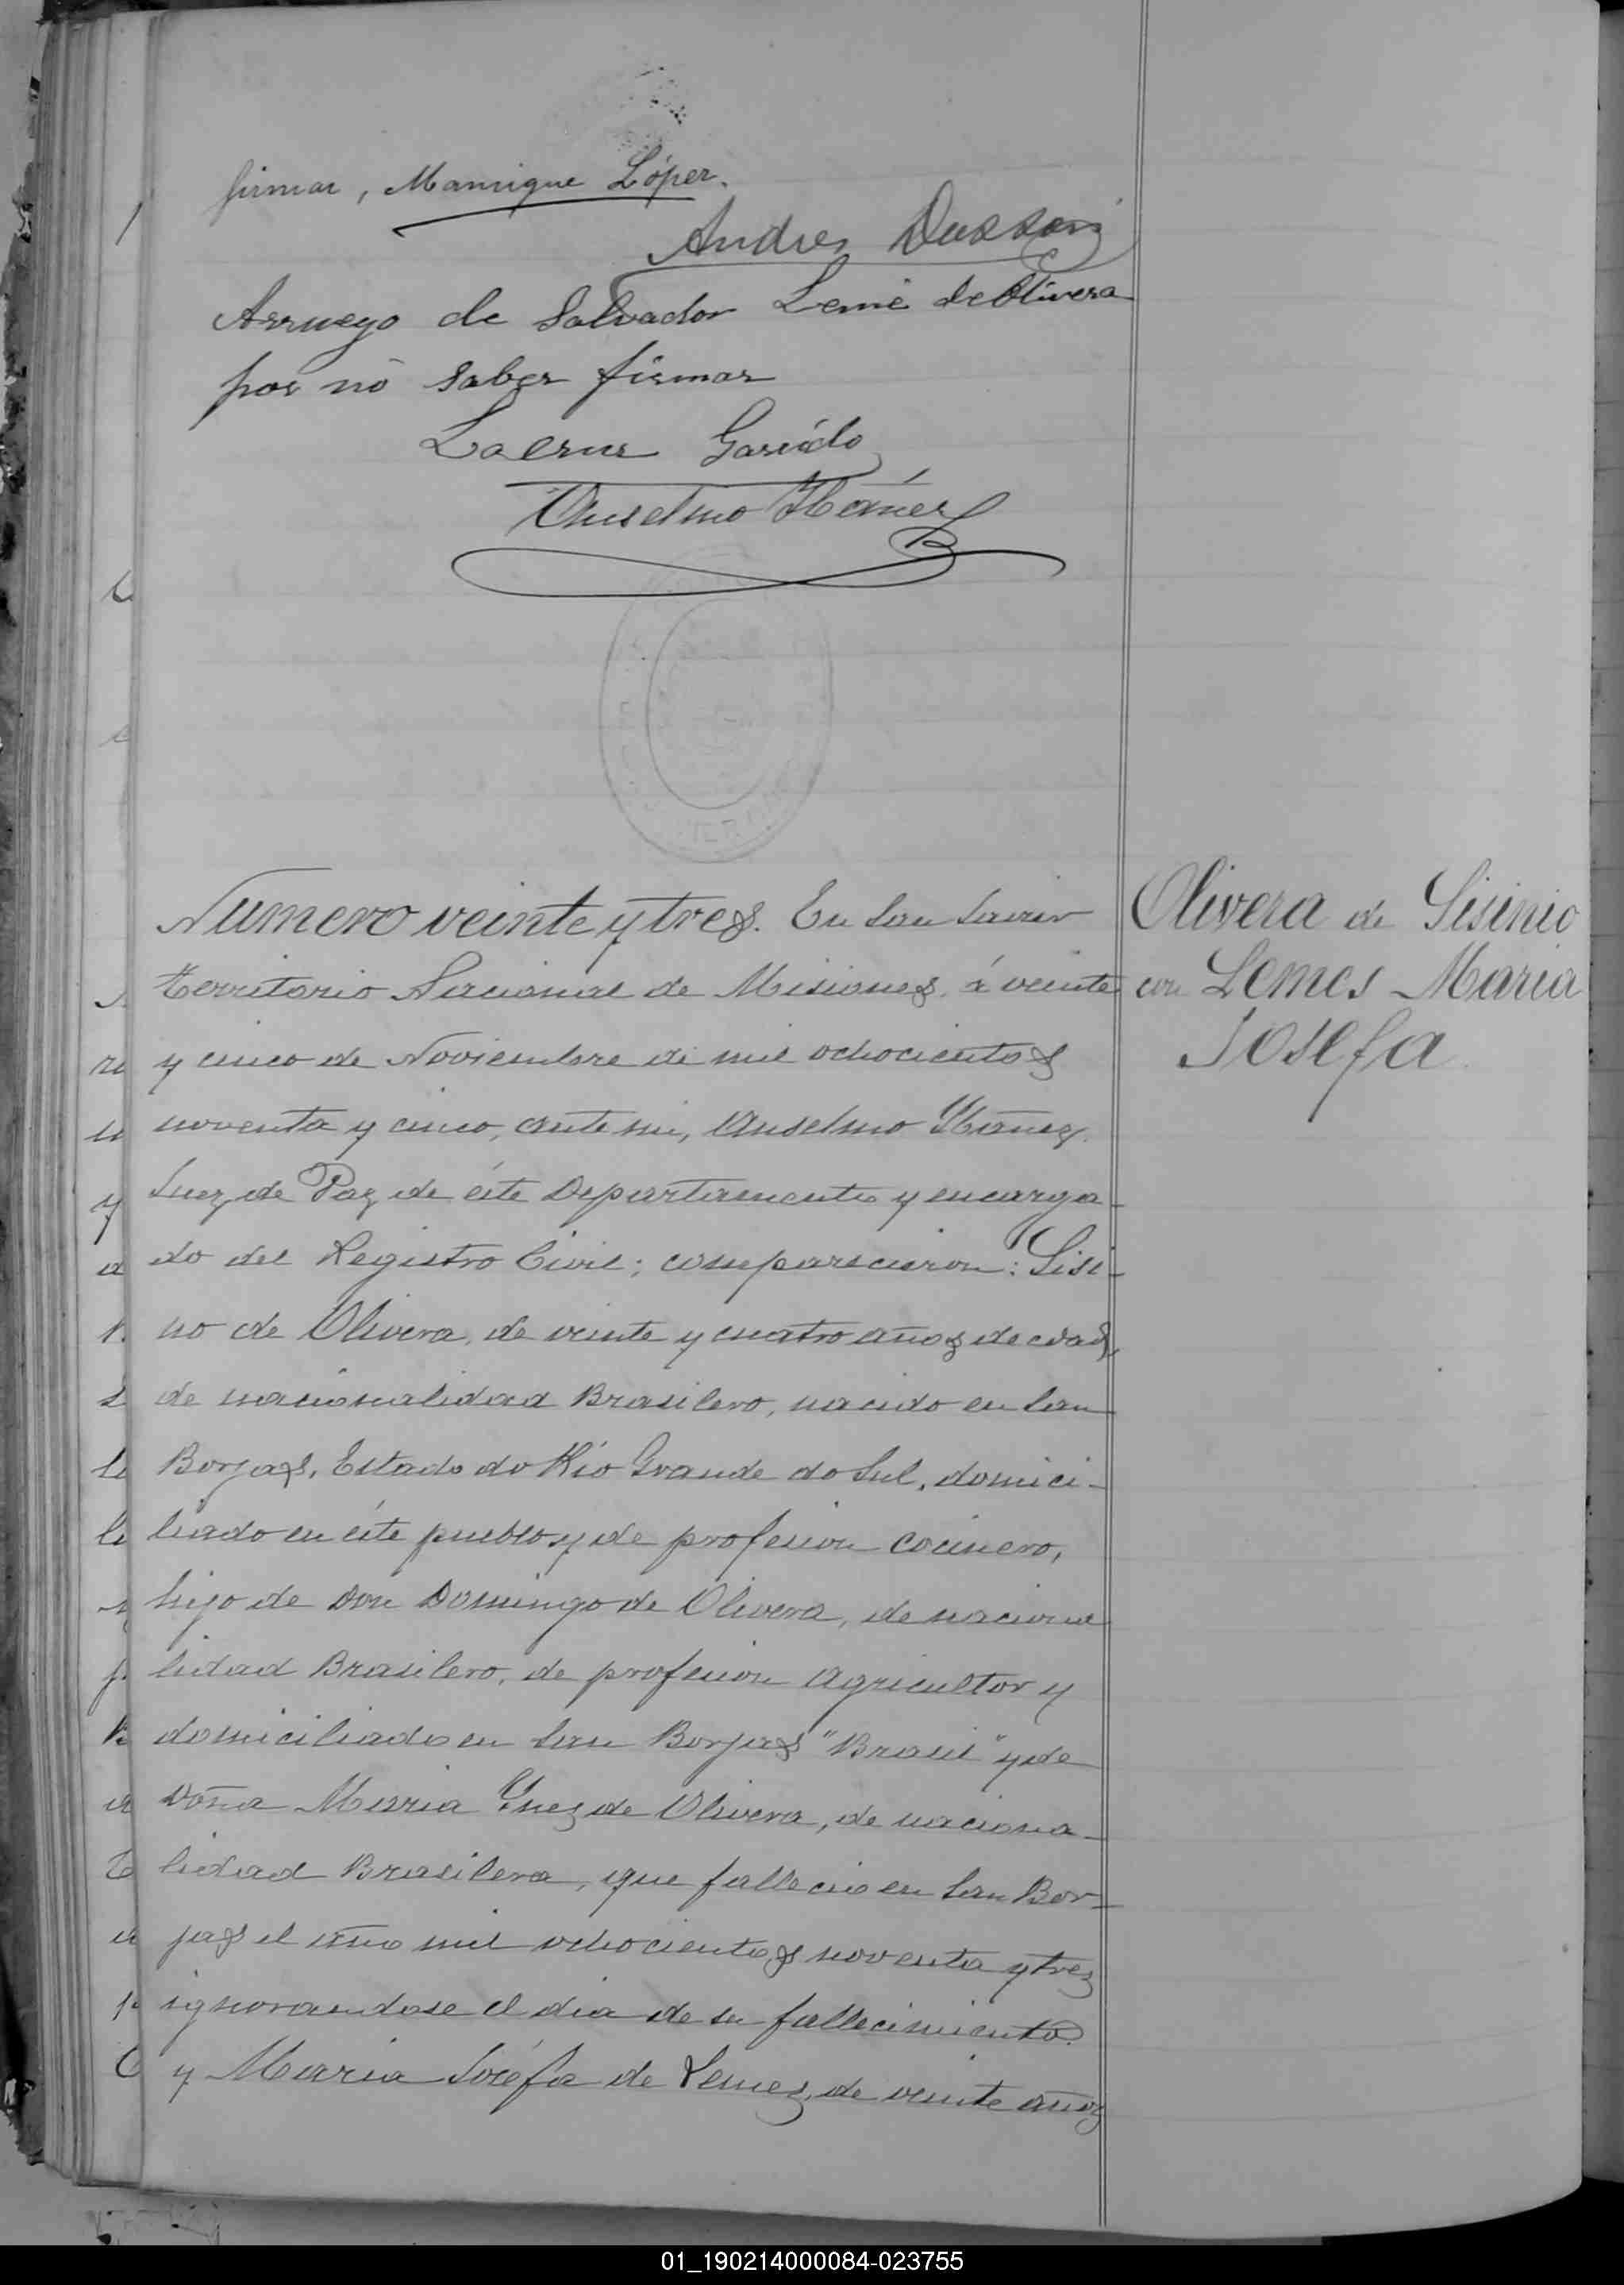 firmar, Manrique López.
Andres
Arruego de Salvador Leme de Olivera
por no saber firmar
Lacruz Garrido
Anselmo Ybañez
Numero veinte y tres. En San Javier
Territorio Nacional de Misiones, á veinte
y cinco de Noviembre de mil ochocientos
noventa y cinco, ante mi, Anselmo Ybañez,
Juez de Paz de éste Departamento y encarga-
do del Registro Civil; comparecieron: Sisi-
no de Olivera, de veinte y cuatro años de edad,
de nacionalidad Brasilero, nacido en San
Borjas, Estado do Rio Grande do Sul, domici-
liado en éste pueblo y de profesion cocinero,
hijo de Don Domingo de Olivera, de naciona
lidad Brasilero, de profesion Agricultor y
domiciliado en San Borjas "Brasil" y de
Doña Maria Ynez de Olivera, de naciona-
lidad Brasilera, que fallecio en San Bor-
jas el año mil ochocientos noventa y tres
ignorandose el dia de su fallecimiento.
y Maria Joséfa de Lemes, de veinte años
Olivera de Sisinio
con Lemes Maria
Josefa
01_190214000084-023755